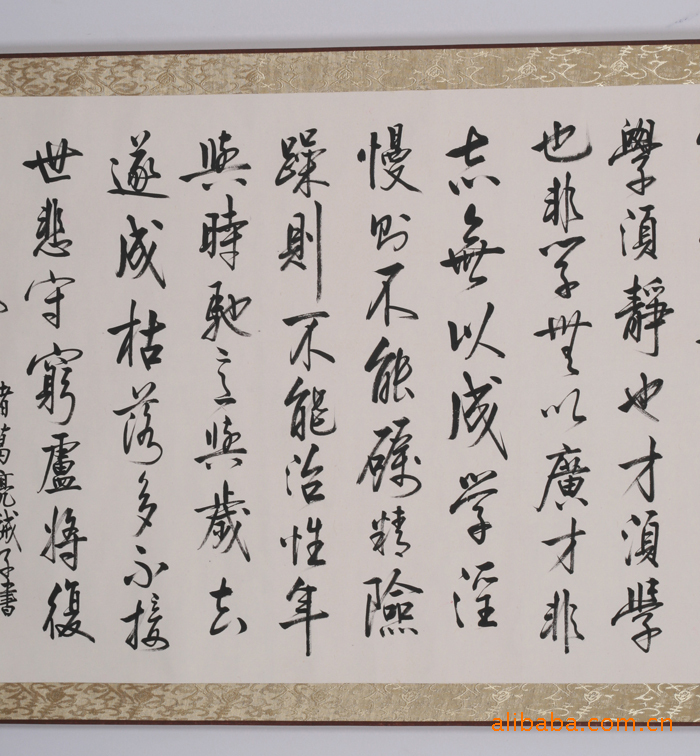 學須靜也才須學
也非学無以廣才非
志無以成学淫
慢则不能礪精險
躁則不能治性年
與時馳意與歲去
遂成枯落多不接
世悲守窮盧將復
諸葛亮誡子書
alibaba.com.cn